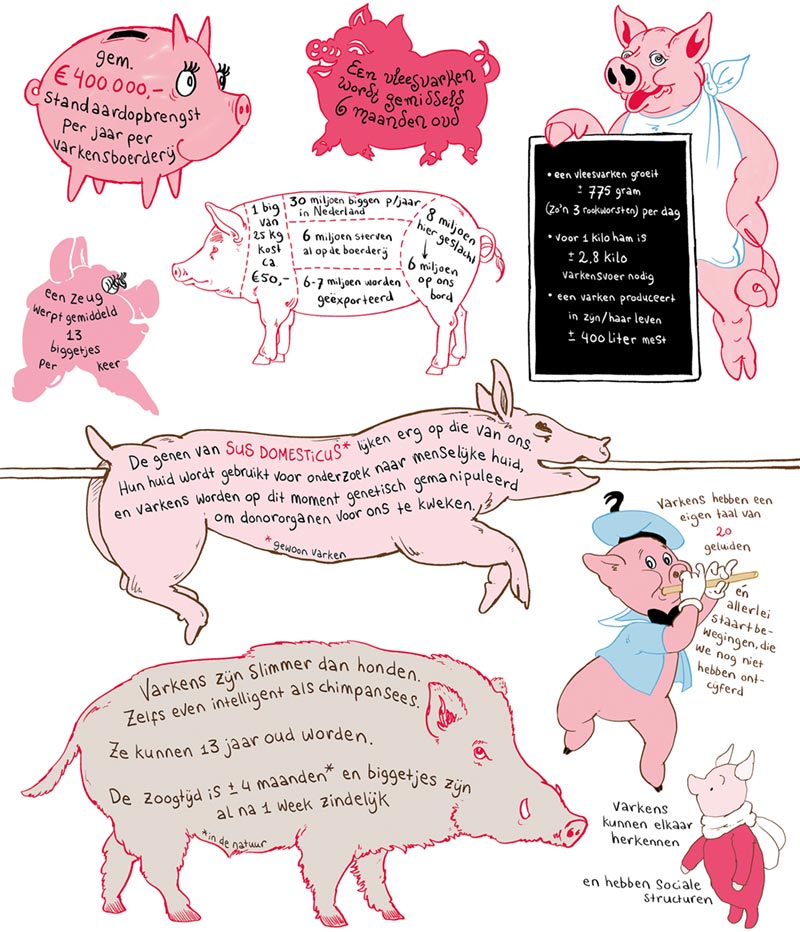 gem.
€ 400.000,-
standaardopbrengst
per jaar per
varkensboerderij
Een vleesvarken
wordt gemiddeld
6 maanden oud
• een vleesvarken groeit
± 775 gram
(zo'n 3 rookworsten) per dag
• voor 1 kilo ham is
± 2,8 kilo
varkensvoer nodig
• een varken produceert
in zijn/haar leven
± 400 liter mest
1 big
van
25 kg
kost
ca.
€50,-
30 miljoen biggen p/jaar
in Nederland
6 miljoen sterven
al op de boerderij
6-7 miljoen worden
geëxporteerd
8 miljoen
hier geslacht
↓
6 miljoen
op ons
bord
een zeug
werpt gemiddeld
13
biggetjes
per keer
De genen van SUS DOMESTiCUS* lijken erg op die van ons.
Hun huid wordt gebruikt voor onderzoek naar menselijke huid,
en varkens worden op dit moment genetisch gemanipuleerd
om donororganen voor ons te kweken.
*gewoon varken
Varkens hebben een
eigen taal van
20
geluiden
én
allerlei
staartbe-
wegingen, die
we nog niet
hebben ont-
cijferd
Varkens zijn slimmer dan honden.
Zelfs even intelligent als chimpansees.
Ze kunnen 13 jaar oud worden.
De zoogtijd is ± 4 maanden* en biggetjes zijn
al na 1 week zindelijk
*in de natuur
Varkens
kunnen elkaar
herkennen
en hebben sociale
structuren